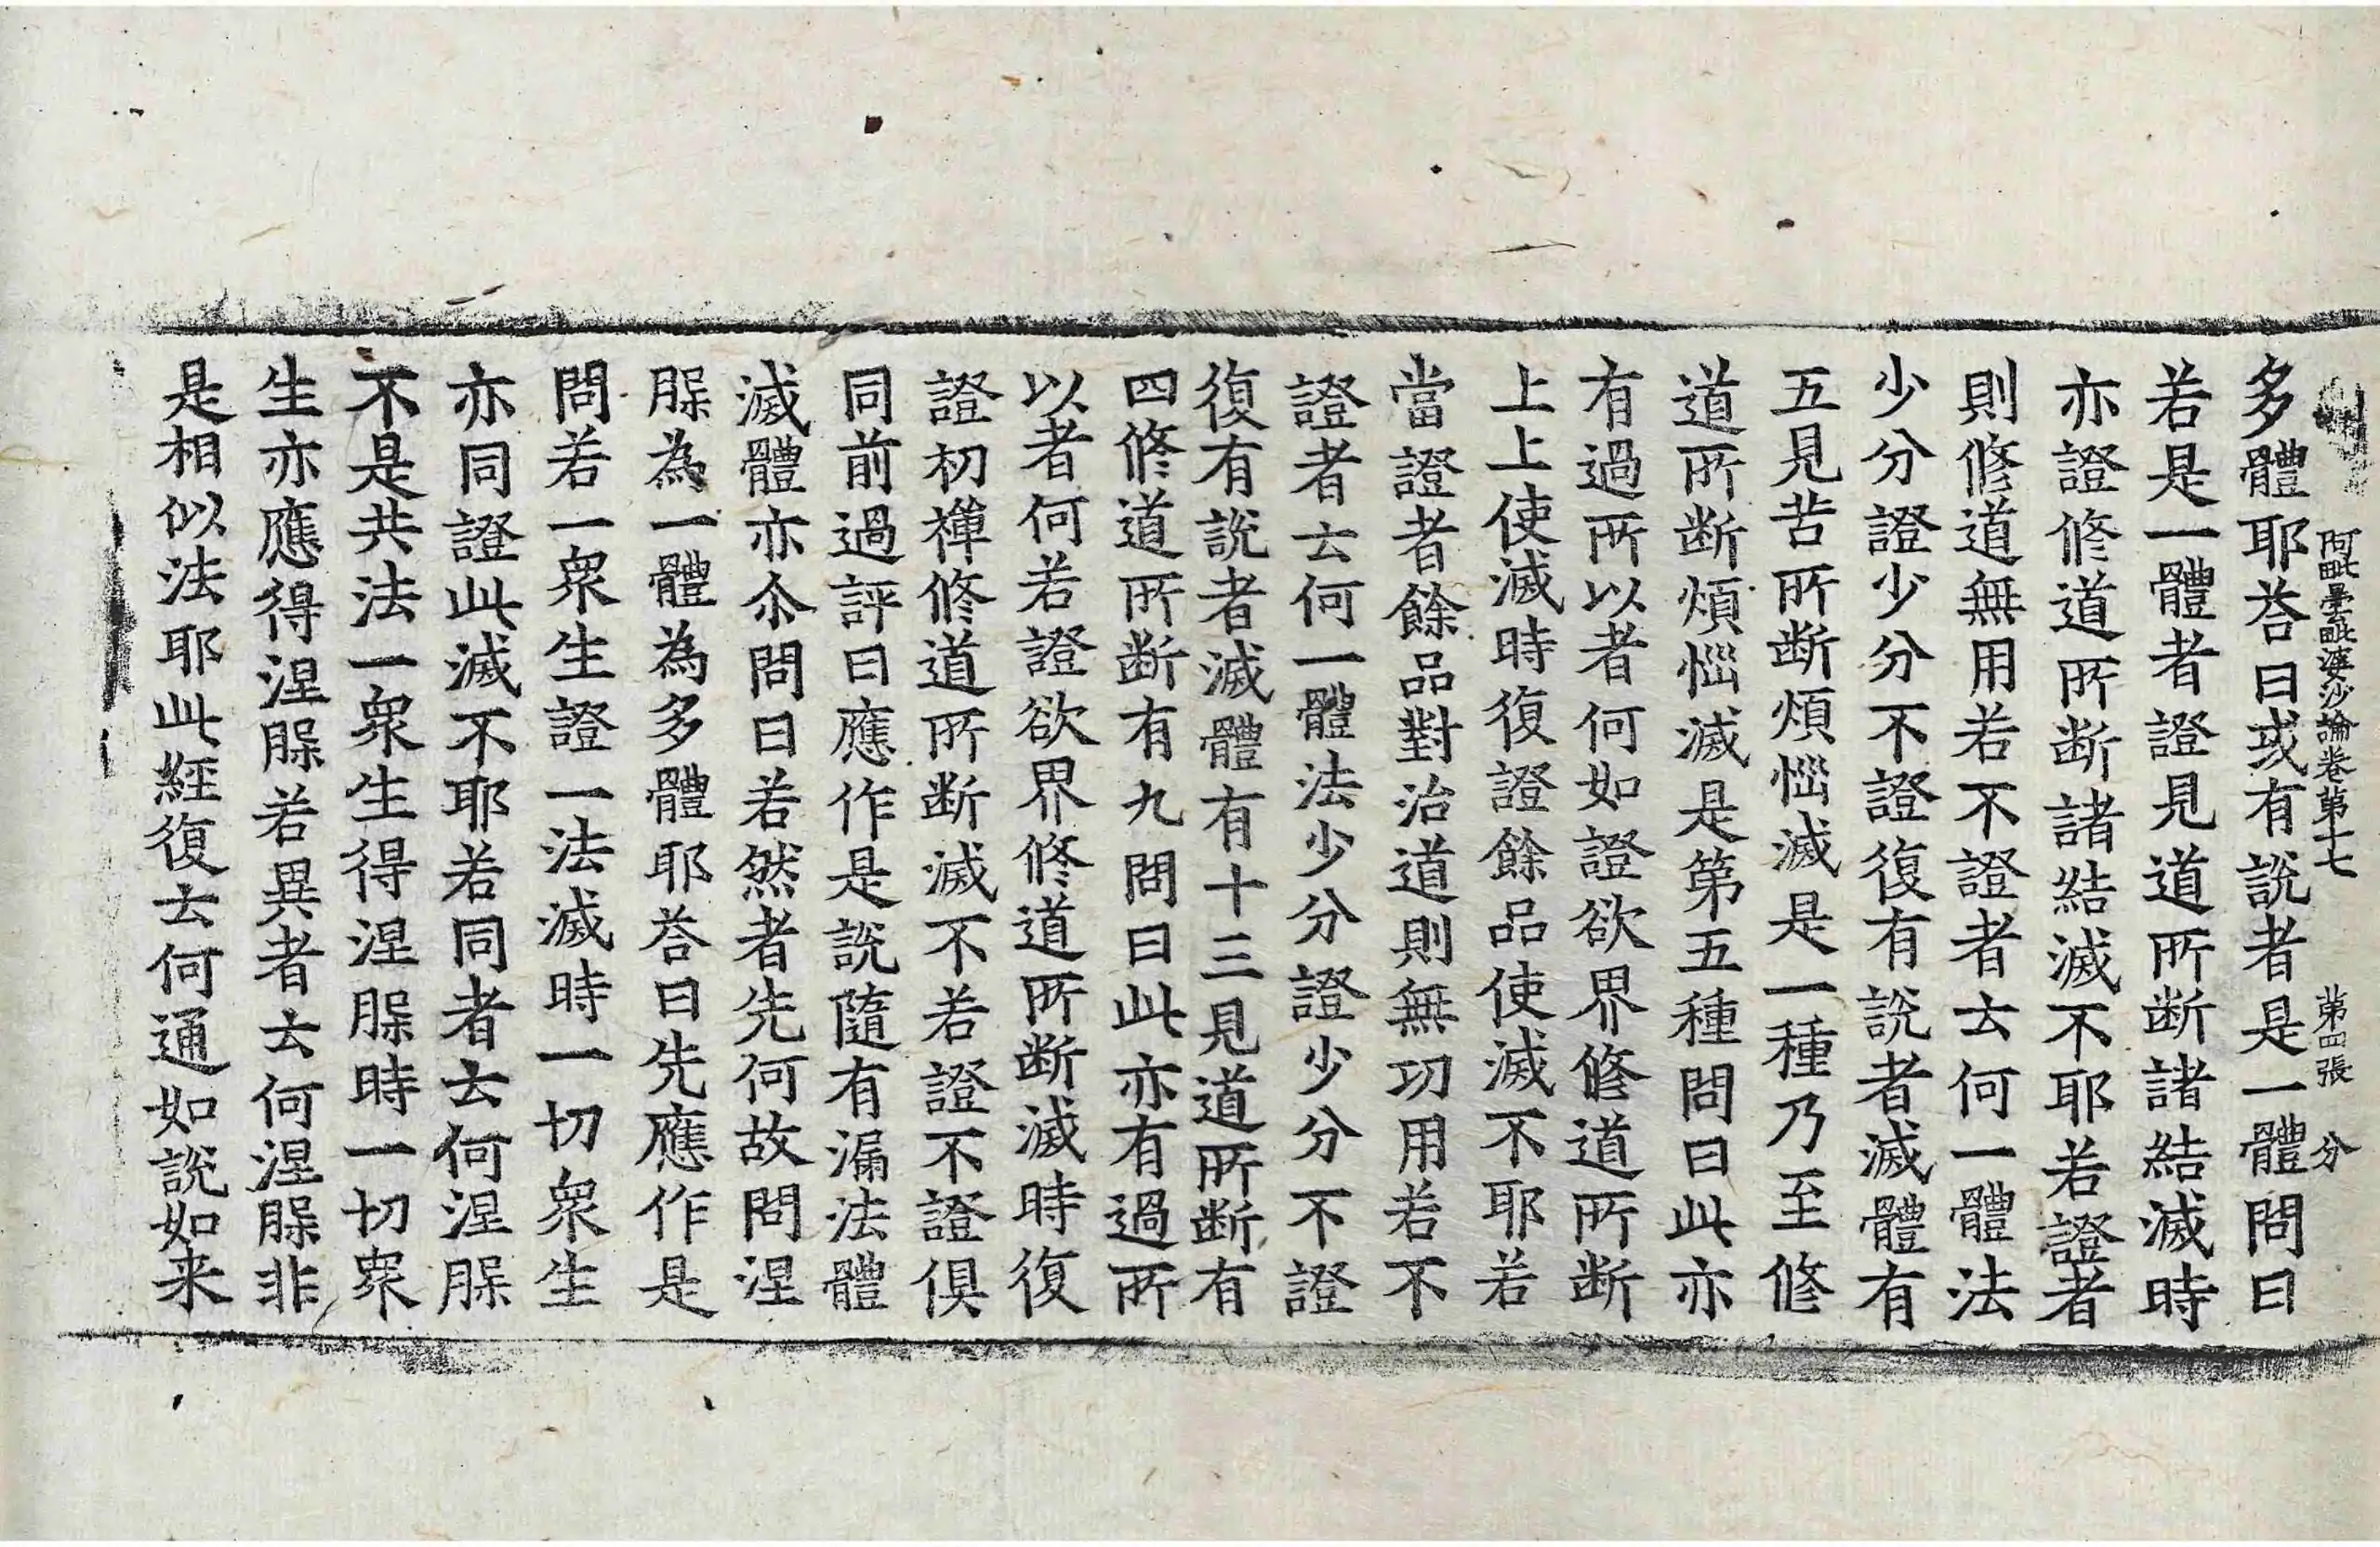 阿毗曇毗婆沙論卷第十七 第四張 分
多體耶荅曰或有說者是一體問曰
若是一體者證見道所断諸結滅時
亦證修道所断諸結滅不耶若證者
則修道無用若不證者云何一體法
少分證少分不證復有說者滅體有
五見苦所断煩惱滅是一種乃至修
道所断煩惱滅是第五種問曰此亦
有過所以者何如證欲界修道所断
上上使滅時復證餘品使滅不耶若
當證者餘品對治道則無功用若不
證者云何一體法少分證少分不證
復有說者滅體有十三見道所断有
四修道所断有九問曰此亦有過所
以者何若證欲界修道所断滅時復
證初禪修道所断滅不若證不證俱
同前過評曰應作是說隨有漏法體
滅體亦尒問曰若然者先何故問涅
槃為一體為多體耶荅曰先應作是
問若一衆生證一法滅時一切衆生
亦同證此滅不耶若同者云何涅槃
不是共法一衆生得涅槃時一切衆
生亦應得涅槃若異者云何涅槃非
是相似法耶此經復云何通如說如来